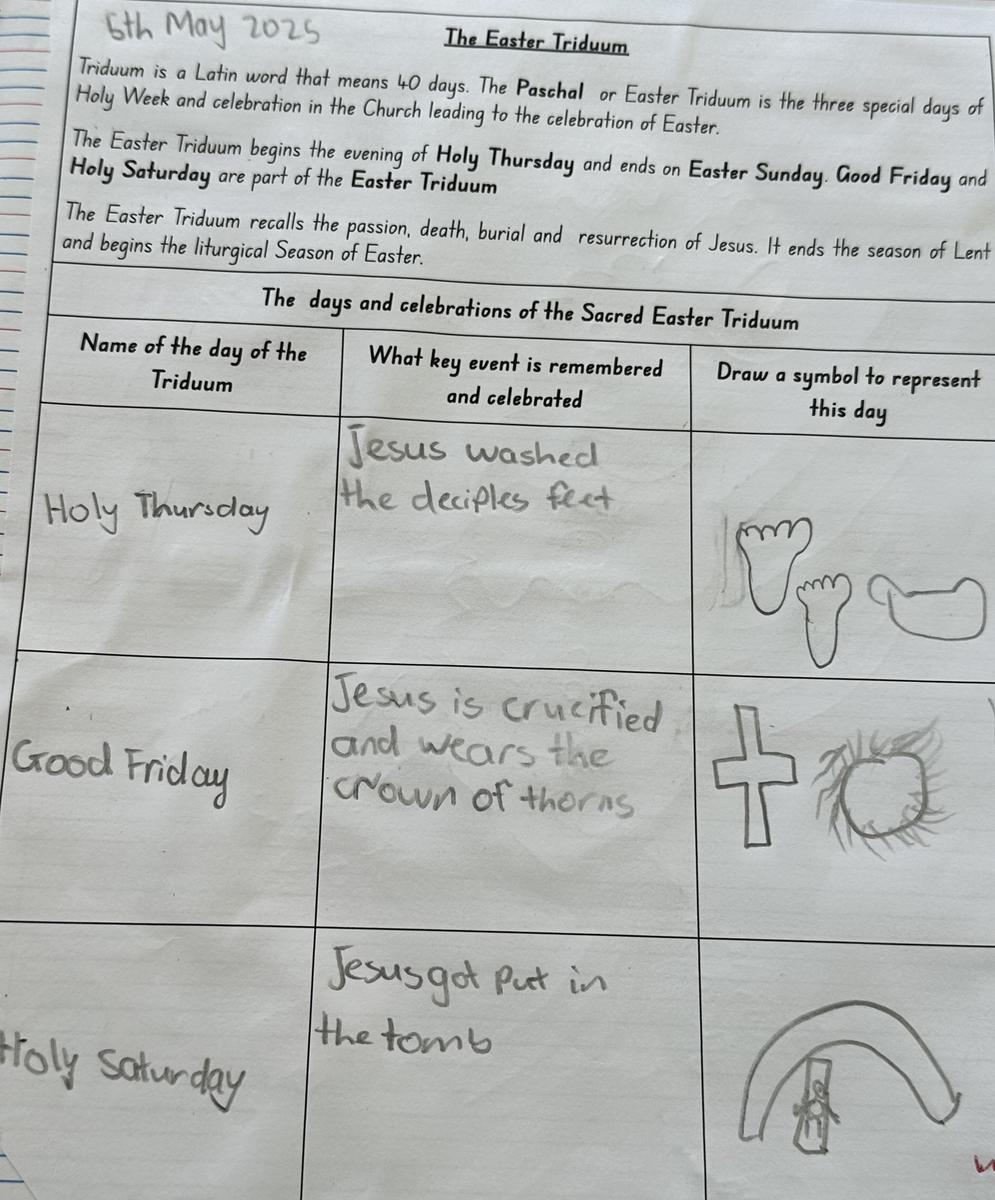 6th May 2025
The Easter Triduum
Triduum is a Latin word that means 40 days. The Paschal or Easter Triduum is the three special days of
Holy Week and celebration in the Church leading to the celebration of Easter.
The Easter Triduum begins the evening of Holy Thursday and ends on Easter Sunday. Good Friday and
Holy Saturday are part of the Easter Triduum
The Easter Triduum recalls the passion, death, burial and resurrection of Jesus. It ends the season of Lent
and begins the liturgical Season of Easter.
The days and celebrations of the Sacred Easter Triduum
Name of the day of the
Triduum
What key event is remembered
and celebrated
Draw a symbol to represent
this day
Holy Thursday
Jesus washed
the deciples feet
Good Friday
Jesus is crucified
and wears the
crown of thorns
Holy Saturday
Jesus got put in
the tomb